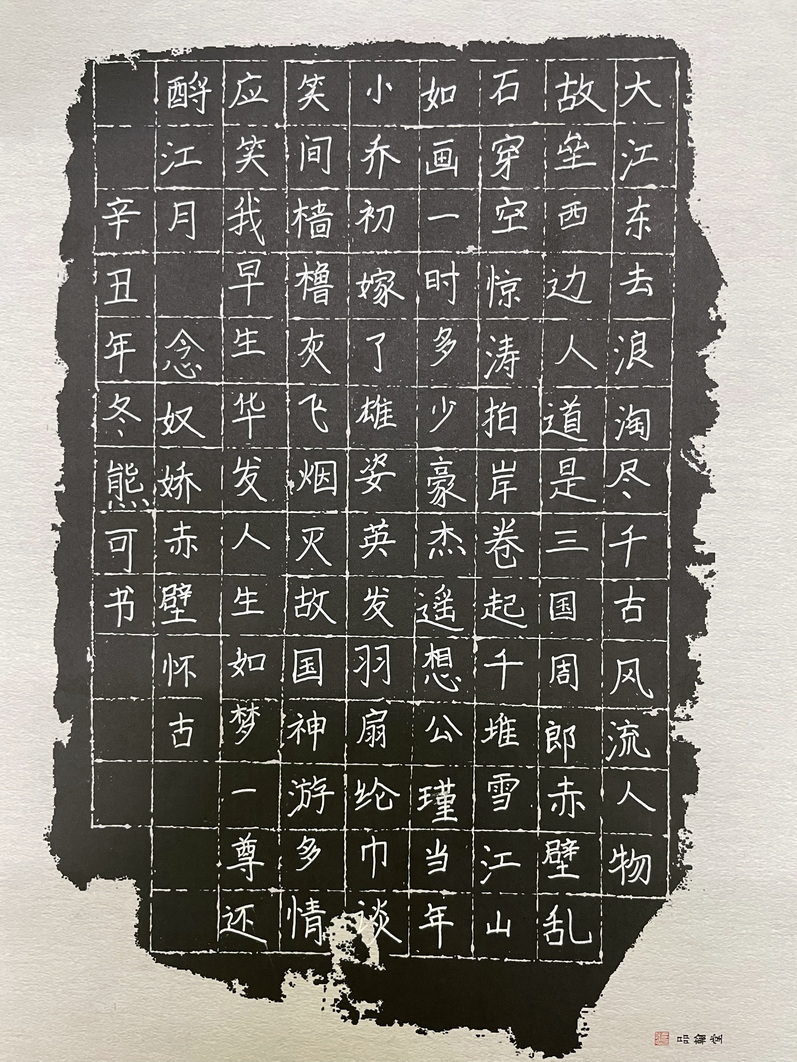 大江东去浪淘尽千古风流人物
故垒西边人道是三国周郎赤壁乱
石穿空惊涛拍岸卷起千堆雪江山
如画一时多少豪杰遥想公瑾当年
小乔初嫁了雄姿英发羽扇纶巾谈
笑间樯橹灰飞烟灭故国神游多情
应笑我早生华发人生如梦一尊还
酹江月 念奴娇赤壁怀古
辛丑年冬熊可书
品翰堂